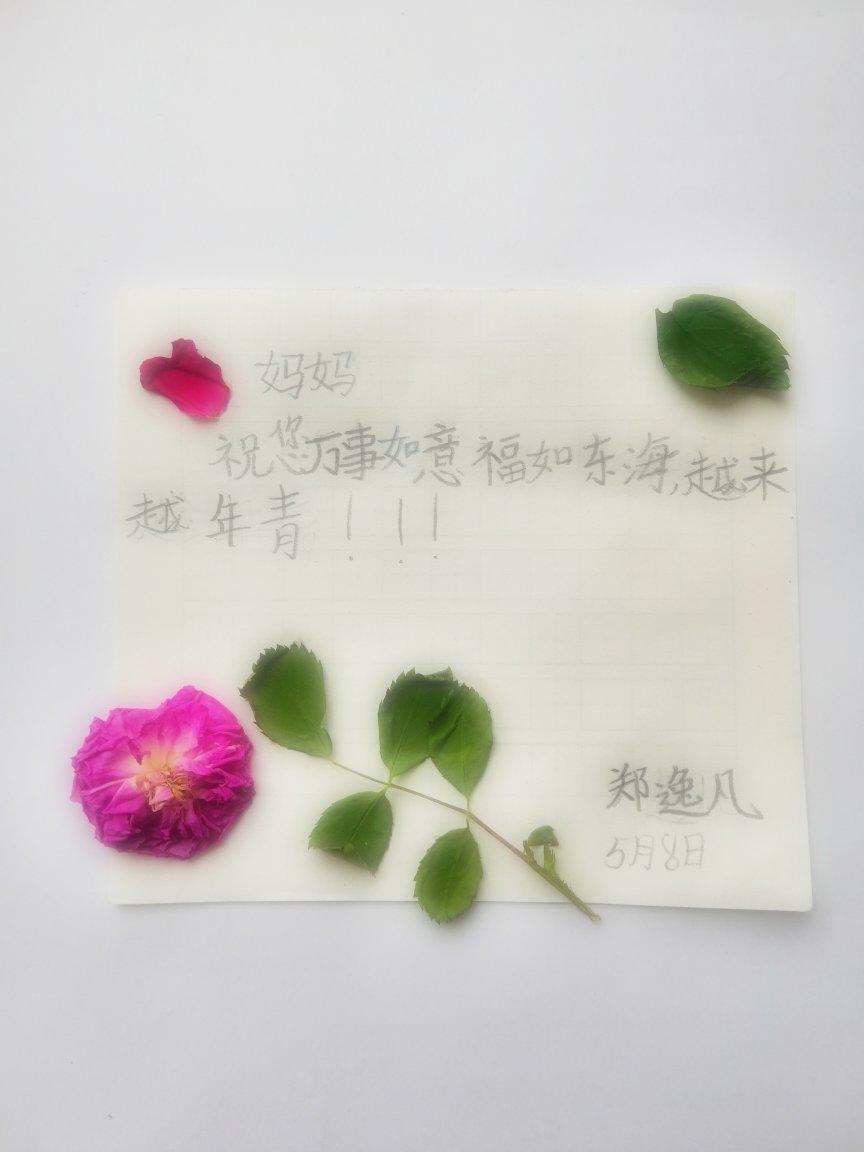 妈妈
祝您万事如意福如东海,越来
越年青！！！
郑逸凡
5月8日